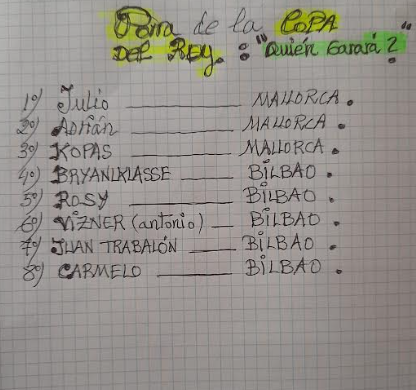 Porra de la COPA
DEL REY. : "Quién Garará?"
1º) Julio MALLORCA.
2º) Adrián MALLORCA.
3º) KOPAS MALLORCA.
4º) BRYANLKLASSE BILBAO.
5º) ROSY BILBAO.
6º) VIZNER (antonio) BILBAO.
7º) JUAN TRABALÓN BILBAO.
8º) CARMELO BILBAO.